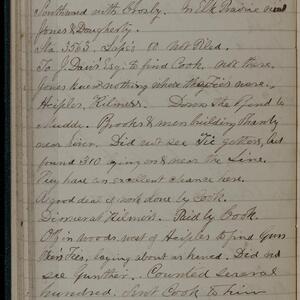 Southward with Crosby. In Elk Prairie near
Jones & Dougherty.
No. 3363. Sapi's 00 not Piled.
To J. Davis Esq. to find Cook. Not there.
Jones knew nothing where the Ties were.
Heiples, Witness. Down the Road to
Mudde. Brooks & men building Shanty
near River. Did not see Tie gathers, but
found 300 lying on & near the Line.
They have an excellent chance here.
A good deal of work done by Cook.
Dismissal Paid by Cook.
Off in woods west of Heiples to find Gun
ther's Ties, saying about in hand. Did not
see Gunther. Counted several
hundred. Sent Cook to him